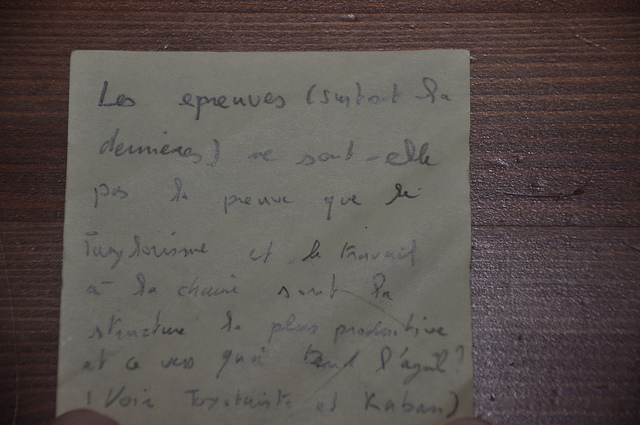 Les épreuves (surtout la
dernières) ne sont-elle
pas la preuve que le
Taylorisme et le travail
à la chaine sont la
structure la plus productive
et ce vers quoi tend l'agil?
(Voir et Kaban)